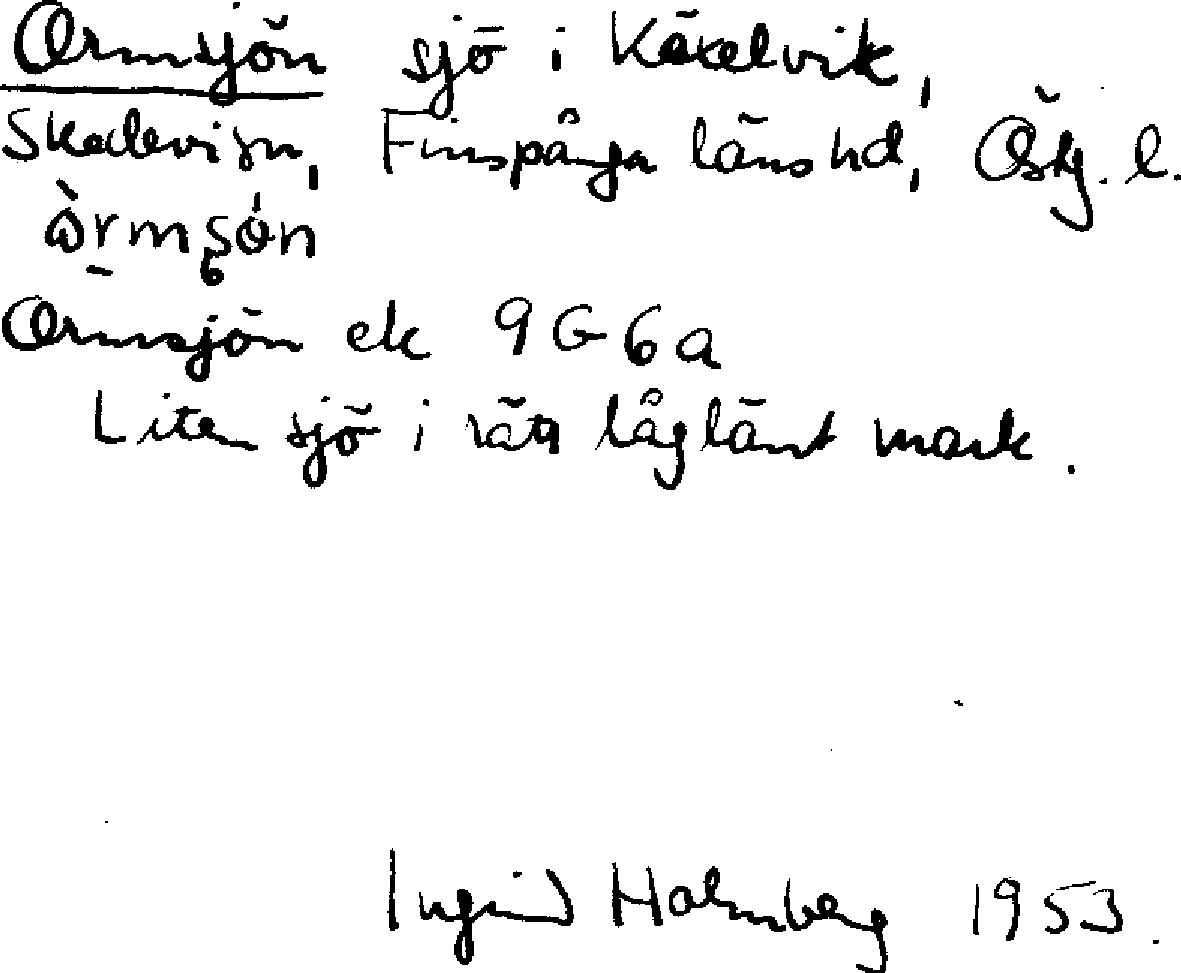 Ormsjön sjö i Käxelvik,
Skedevi sn, Finspånga länshd, Östg. l.
Ormsjön ek 9G6a
Liten sjö i rätt låglänt mark.
Ingrid Holmberg 1953.